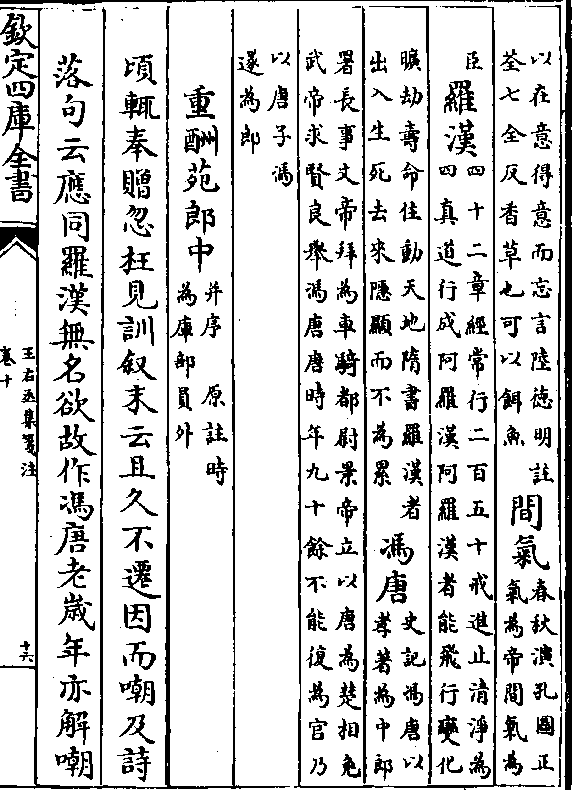 以在意得意而忘言陸德明註
荃七全反香草也可以餌魚
間氣
春秋演孔圖正
氣為帝間氣為
臣
羅漢
四十二章經常行二百五十戒進止清淨為
四真道行成阿羅漢阿羅漢者能飛行變化
曠劫壽命住動天地隋書羅漢者
出入生死去來隱顯而不為累
馮唐
史記馮唐以
孝著為中郎
署長事文帝拜為車騎都尉景帝立以唐為楚相免
武帝求賢良舉馮唐唐時年九十餘不能復為官乃
以唐子馮
遂為郎
重酬苑郎中
并序 原註時
為庫部員外
頃輒奉贈忽枉見訓叙末云且久不遷因而嘲及詩
落句云應同羅漢無名欲故作馮唐老歲年亦解嘲
欽定四庫全書
王右丞集箋注
卷十
十六